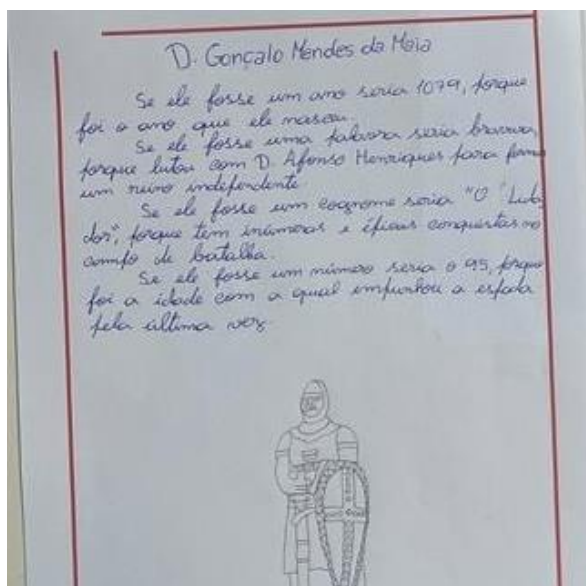 D. Gonçalo Mendes da Maia
Se ele fosse um ano seria 1079, porque
foi o ano que ele nasceu.
Se ele fosse uma palavra seria bravura,
porque lutou com D. Afonso Henriques para formar
um reino independente.
Se ele fosse um cognome seria "O Lida
dor", porque tem inúmeras e épicas conquistas no
campo de batalha.
Se ele fosse um número seria o 95, porque
foi a idade com a qual empunhou a espada
pela última vez.